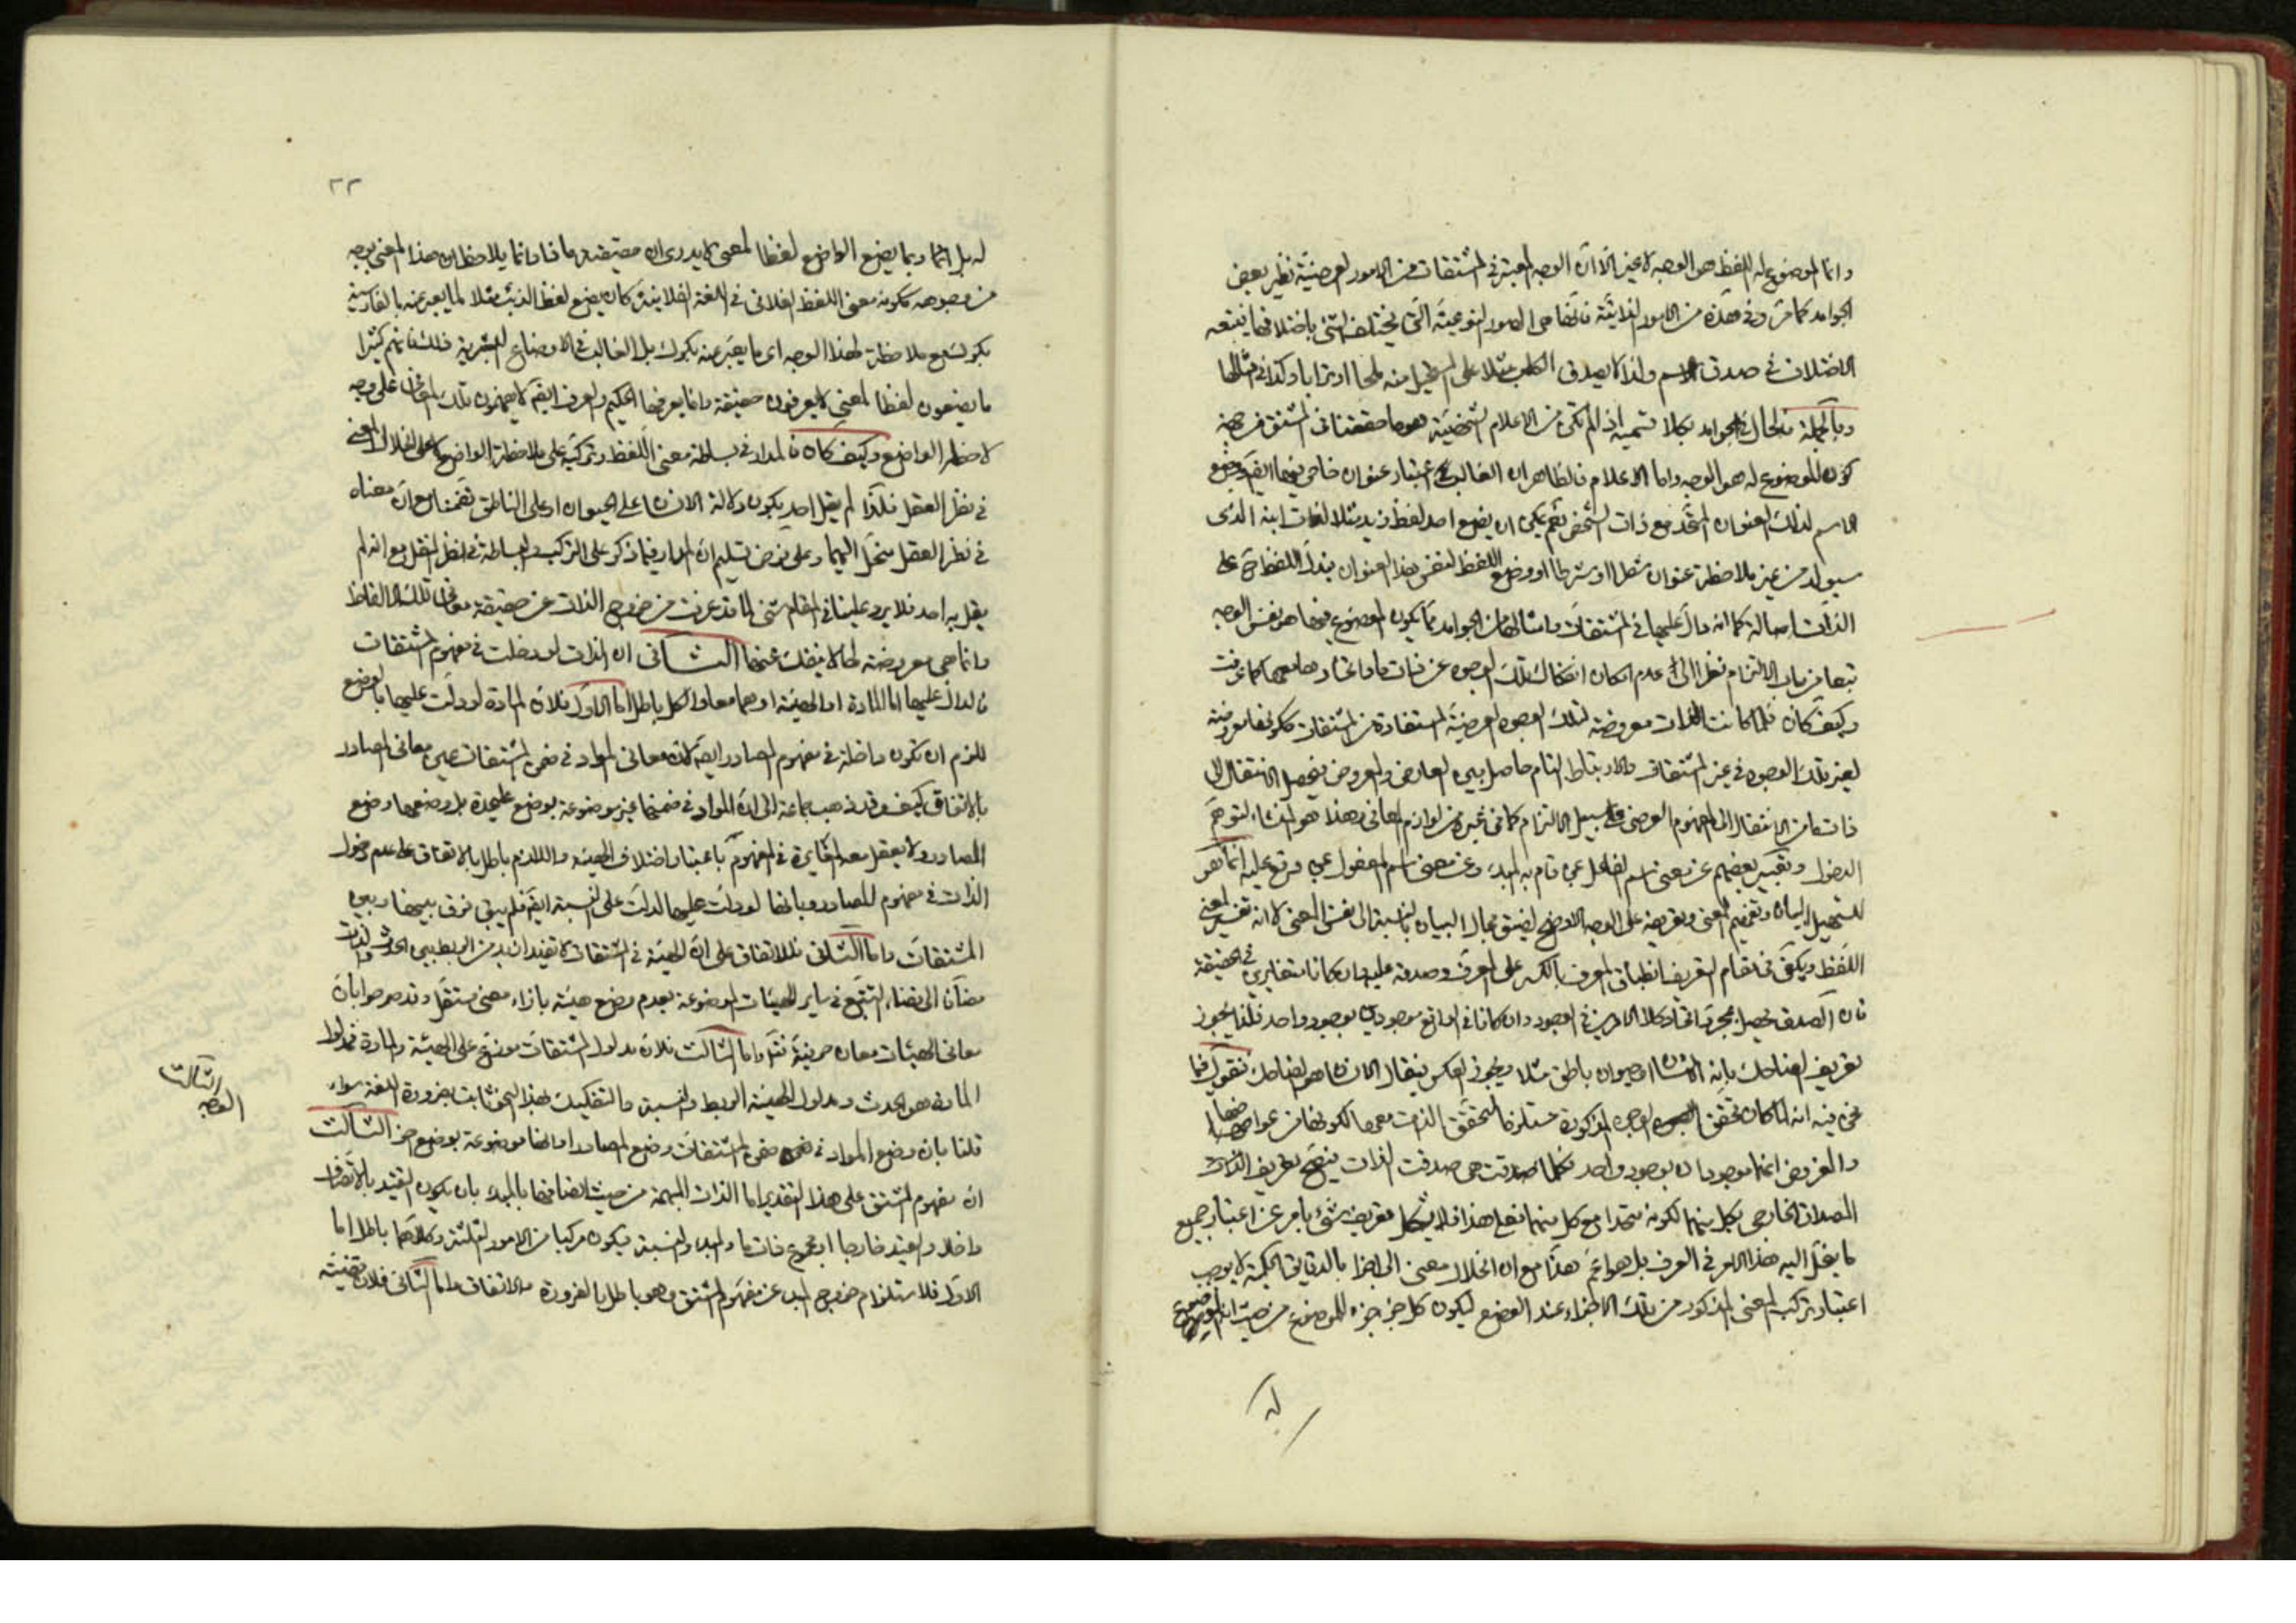 وانما الموضوع له اللفظ هو الوجه لا غير الا ان الوجه المعتبر في المشتقات من الامور العرضية نظير بعض
الجوامد كما مر وفي هذه من الامور الذاتية فانها هي الصور النوعية التي يختلف الشئ باختلافها فيتبعه
الاختلاف في صدق الاسم ولذا لا يصدق الكلب مثلا على المستحيل منه ملحا او ترابا وكذا في امثالها
وبالجملة فالحال في الجوامد بكلا قسميه اذا لم تكن من الاعلام الشخصية هو ما حققنا في المشتق من جهة
كون الموضوع له هو الوجه واما الاعلام فالظاهر ان الغالب اعتبار عنوان خاص فيها ايضا ووضع
الاسم لذلك العنوان المتحد مع ذات الشخص نعم يمكن ان يضع احد لفظ زيد مثلا لذات ابنه الذي
سيولد من غير ملاحظة عنوان شطرا او شرطا او وضع اللفظ لنفس هذا العنوان فيدل اللفظ ح على
الذات اصالة كما انه دال عليها في المشتقات وامثالها من الجوامد مما يكون الموضوع فيها هو نفس الوجه
تبعا من باب الالتزام نظرا الى عدم امكان انفكاك تلك الوجوه عن ذات ما واتحادها معها كما عرفت
وكيف كان فلما كانت الذات معروضة لتلك الوجوه العرضية المستفادة من المشتقات ككونها معروضة
لغير تلك الوجوه في غير المشتقات والارتباط التام حاصل بين العارض والمعروض فيحصل الانتقال الى
ذات ما من الانتقال الى المفهوم العرضي على سبيل الالتزام كما في غيره من لوازم المعاني وهذا هو المنشاء لتوهم
الدخول وتعبير بعضهم عن معنى اسم الفاعل بمن قام به المبدء وعن معنى اسم المفعول بمن وقع عليه انما هو
لتسهيل البيان وتفهيم المعنى وتعريضه على الوجه الاوضح لضيق مجال البيان بالنسبة الى نفس المعنى لا انه تفسير لمعنى
اللفظ ويكفي في مقام التعريف انطباق المعرف بالكسر على المعرف وصدقه عليه وان كانا متغايرين في الحقيقة
فان الصدق يحصل بمجرد اتحاد كلا الامرين في الوجود وان كانا في الواقع موجودين بوجود واحد فلذا يجوز
تعريف الضاحك بانه الانسان او حيوان ناطق مثلا ويجوز العكس فيقال الانسان هو الضاحك فنقول فيما
نحن فيه انه لما كان تحقق الوجوه المذكورة مستلزما لتحقق الذات معها لكونها من عوارضها
والغرض انهما موجودان بوجود واحد فكلما صدقت هي صدقت الذات فيصح تعريف الذات
المصداق الخارجي بكل منهما لكونه متحدا مع كل منهما فعلى هذا فلا يشكل تعريف شئ بامر عن اعتبار جميع
ما ينحل اليه هذا الامر في العرف بل هو اعم هذا مع ان انحلال معنى الى اجزاء بالدقايق الحكمية لا يوجب
اعتبار تركب المعنى المذكور من تلك الاجزاء عند الوضع ليكون كل جزء جزء للموضوع من حيث انه الموضوع
له
٢٢
له بل انما ربما يضع الواضع لفظا لمعنى لا يدري ان حقيقته ما ذا وانما يلاحظ ان هذا المعنى بوجه
من وجوهه ككونه معنى اللفظ الفلاني في اللغة الفلانية كان يضع لفظ الذئب مثلا لما يعبر عنه بالفارسية
بكرك مع ملاحظة لهذا الوجه اي ما يعبر عنه بكرك بل الغالب في الاوضاع البشرية ذلك فانهم كثيرا
ما يضعون لفظا لمعنى لا يعرفون حقيقة وانما يعرفها الحكيم والعرف ايضا لا يفهمون تلك المعاني على وجه
لاحظه الواضع وكيف كان فالمدار في بساطة معنى اللفظ وتركبه على ملاحظة الواضع لا على انحلال المعنى
في نظر العقل فلذا لم يقل احد بكون دلالة الانسان على الحيوان او على الناطق تضمنا مع ان معناه
في نظر العقل منحل اليهما وعلى فرض تسليم ان المدار فيما ذكر على التركب والبساطة في نظر العقل مع انه لم
يقل به احد فلا يرد علينا في المقام شئ لما قد عرفت من خروج الذات عن حقيقة معاني تلك الالفاظ
وانما هي معروضة لها لا ينفك عنها الثاني ان الذات لو دخلت في مفهوم المشتقات
فالدال عليها اما المادة او الهيئة او هما معا والكل باطل اما الاول فلان المادة لو دلت عليها بالوضع
للزم ان تكون داخلة في مفهوم المصادر ايضا لان معاني المواد في ضمن المشتقات عين معاني المصادر
بالاتفاق كيف وقد ذهب جماعة الى ان المواد في ضمنها غير موضوعة بوضع عليحدة بل وضعها وضع
المصادر ولا يعقل معه المغايرة في المفهوم باعتبار اختلاف الهيئة واللازم باطل بالاتفاق على عدم دخول
الذات في مفهوم المصادر وبانها لو دلت عليها لدلت على النسبة ايضا فلم يبق فرق بينها وبين
المشتقات واما الثاني فللاتفاق على ان الهيئة في المشتقات لا تفيد ازيد من الربط بين الحدث والذات
مضافا الى قضاء التتبع في ساير الهيئات الموضوعة بعدم وضع هيئة بازاء معنى مستقل وقد صرحوا بان
معاني الهيئات معان حرفية فتدبر واما الثالث فلان مدلول المشتقات موزع على الهيئة والمادة فمدلول
المادة هو الحدث ومدلول الهيئة الربط والنسبة والتفكيك لهذا النحو ثابت بضرورة اللغة سواء
قلنا بان وضع المواد في ضمن المشتقات وضع المصادر او انها موضوعة بوضع اخر الثالث
ان مفهوم المشتق على هذا التقدير اما الذات المبهمة من حيث اتصافها بالمبدء بان يكون التقييد بالاتصاف
داخلا والقيد خارجا او مجموع ذات ما والمبدء والنسبة فيكون مركبا من الامور الثلثة وكلاهما باطل اما
الاول فلاستلزام خروج المبدء عن مفهوم المشتق وهو باطل بالضرورة والاتفاق واما الثاني فلان قضيته
الوجه الثالث